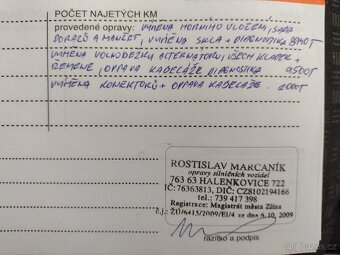 POČET NAJETÝCH KM
provedené opravy: VÝMĚNA HORNÍHO ULOŽENÍ, SADA
DORAZŮ A MANŽET, VÝMĚNA SKLA + DIAGNOSTIKA
VÝMĚNA VOLNOBĚŽKY ALTERNÁTORU, VŠECH KLADEK +
ŘEMENE, OPRAVA KABELÁŽE DIAGNOSTIKA 9500,-
VÝMĚNA KONEKTORŮ + OPRAVA KABELÁŽE 2000,-
ROSTISLAV MARCANÍK
opravy silničních vozidel
763 63 HALENKOVICE 722
IČ:76363813, DIČ: CZ8102194166
tel.: 739 417 398
Registrace: Magistrát města Zlína
č.j.: ZÚ/6415/2009/EI/4 ze dne 6.10.2009
razítko a podpis